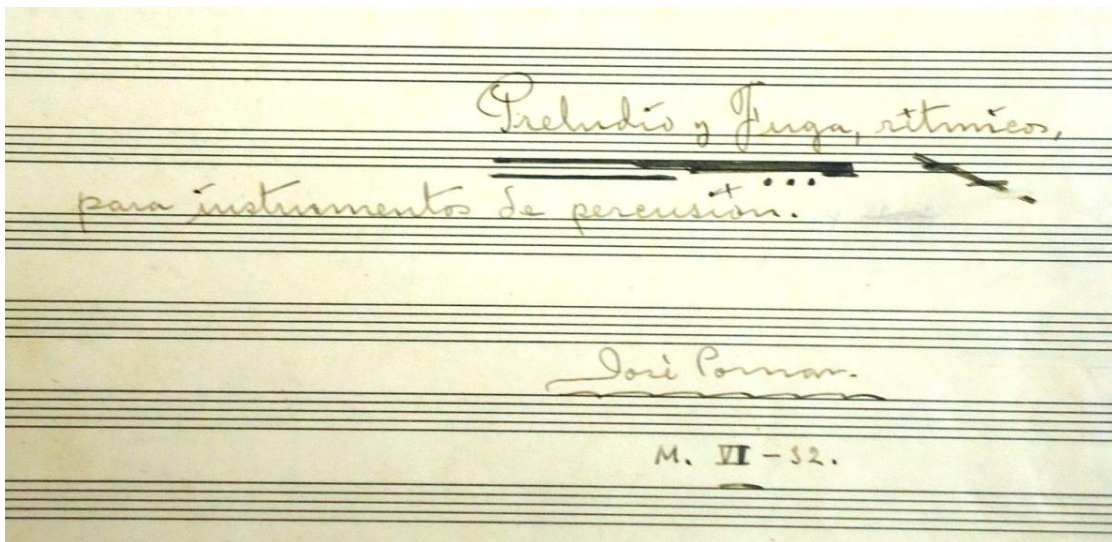 Preludio y Fuga, ritmicos,
para instrumentos de percusión.
José Pomar.
M. VI - 32.